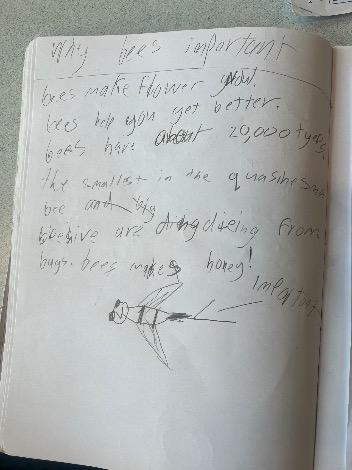 Why bees important
bees make flower grow.
bees help you get better.
bees have about 20,000+ types.
the smallest in the
bee and big
beehive are dieing from
bugs. bees makes honey!
important